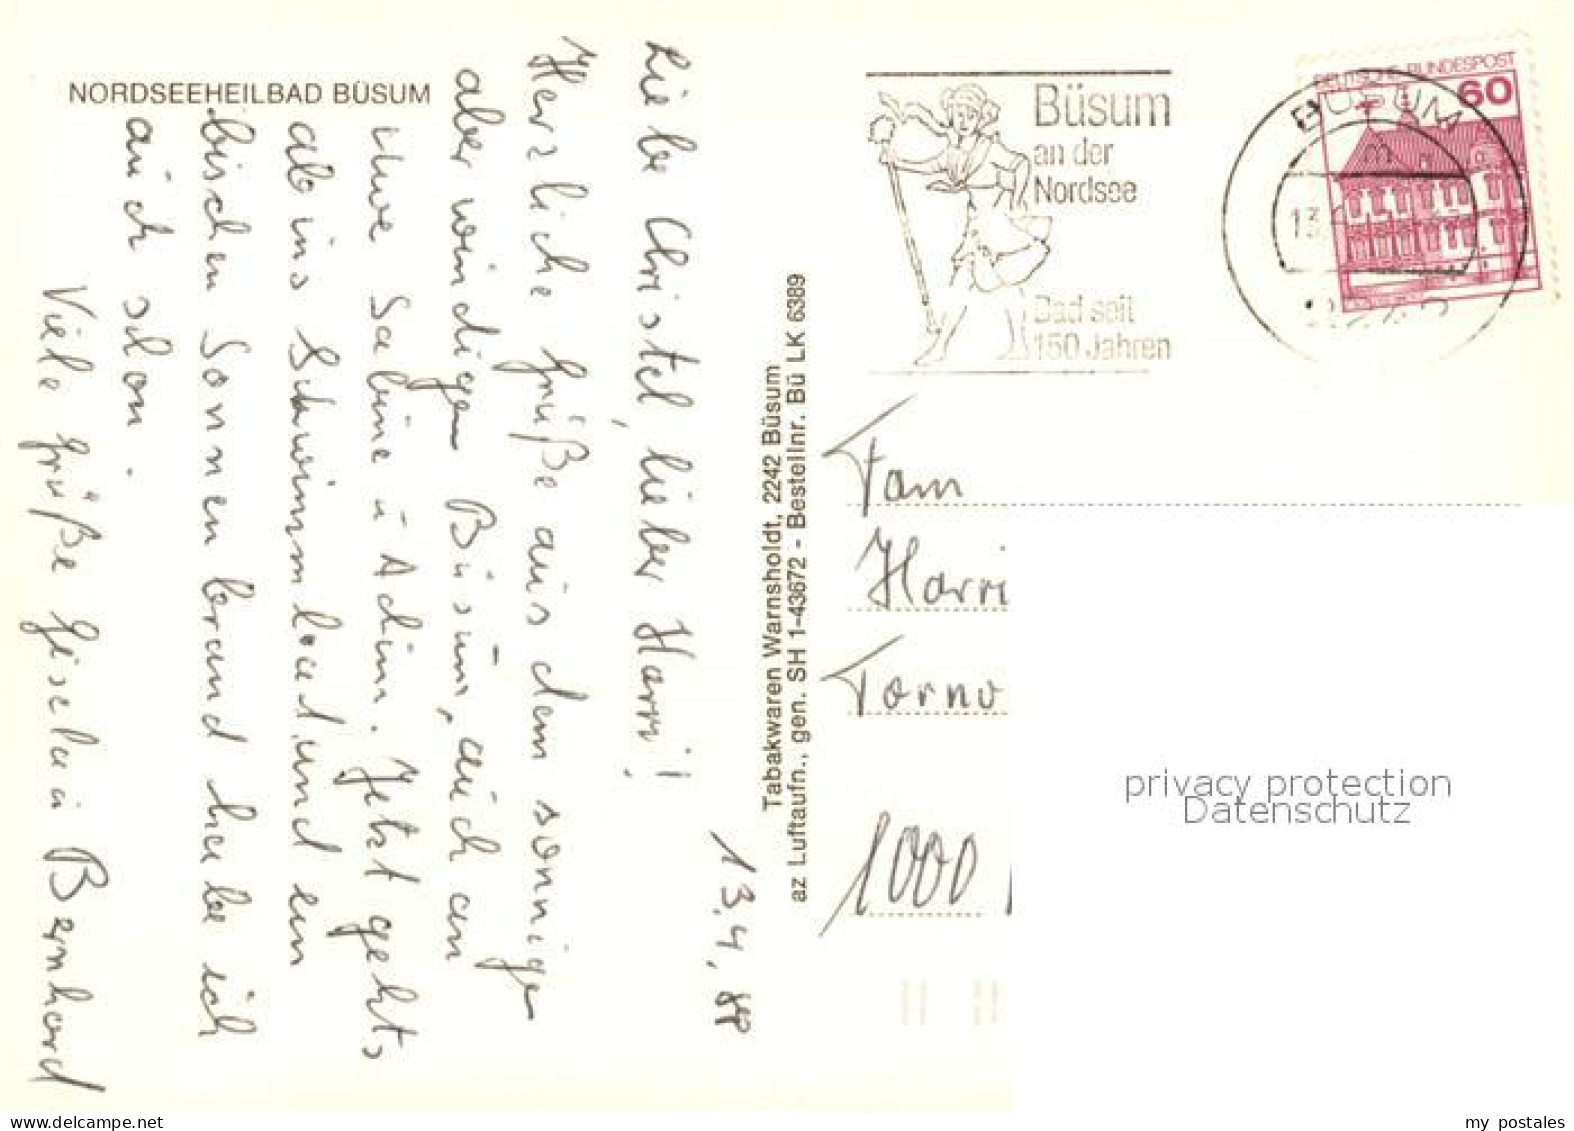 NORDSEEHEILBAD BÜSUM
13.4.
Liebe Christel, lieber Harri!
Herzliche Grüße aus dem sonnigen
aber windigen Büsum, auch an
Uwe Sabine u Achim. Jetzt gehts
ab ins Schwimmbad und ein
bischen Sonnenbrand habe ich
auch schon.
Viele Grüße Gisela u Bernhard
Tabakwaren Warnsholdt, 2242 Büsum
az Luftaufn., gen. SH 1-43672 - Bestellnr. Bü LK 6389
Büsum
an der
Nordsee
Bad seit
150 Jahren
DEUTSCHE BUNDESPOST
60
BÜSUM
m
13
Fam
Harri
Torno
1000
privacy protection
Datenschutz
my postales